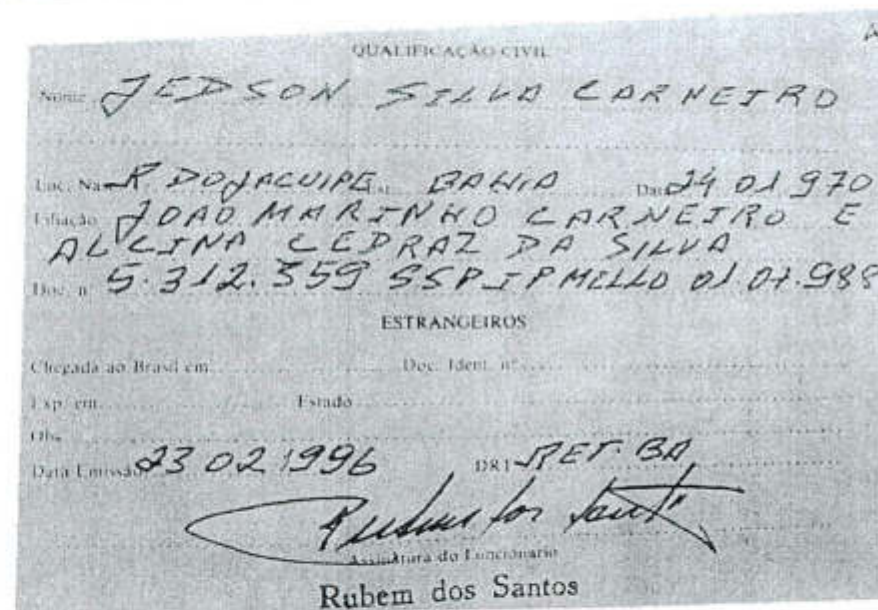 A
QUALIFICAÇÃO CIVIL
Nome JEDSON SILVA CARNEIRO
Loc. Na R. DO JACUIPE Est. BAHIA Data 24 01 970
Filiação JOAO MARINHO CARNEIRO E
ALCINA CEDRAZ DA SILVA
Doc. n 5.312.359 SSP IPMELLO 01 07.988
ESTRANGEIROS
Chegada ao Brasil em Doc. Ident. nº
Exp. em Estado
Obs
Data Emissão 23 02 1996 DRT BA
Rubem dos Santos
Assinatura do Funcionário
Rubem dos Santos